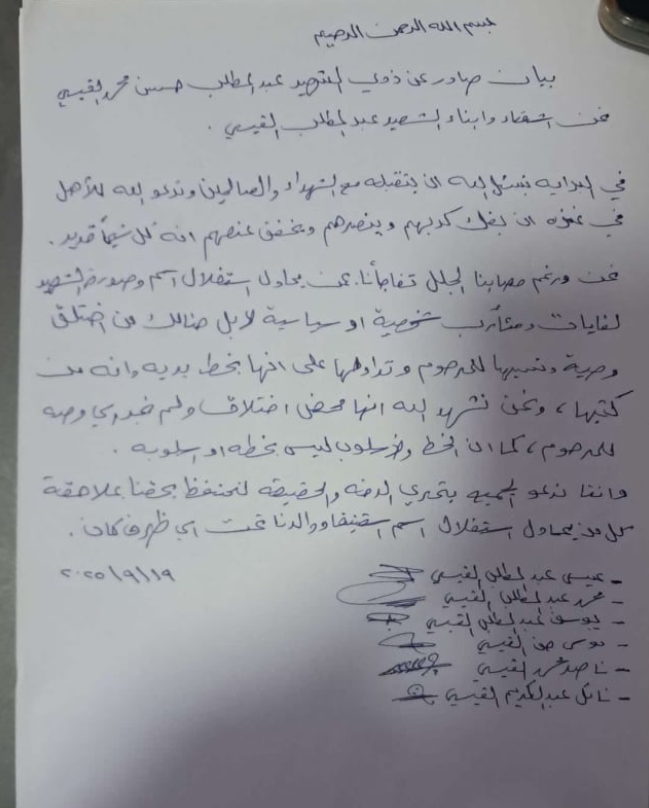 بسم الله الرحمن الرحيم
بيان صادر عن ذوي الشهيد عبدالمطلب حسن محمد القيسي
نحن اشقاء وابناء الشهيد عبدالمطلب القيسي .
في البداية نسئل الله ان يتقبله مع الشهداء والصالحين وندعو الله للأهل
في غزه ان يفك كربهم وينصرهم ويخفف عنهم انه كل شيئاً قدير .
نحن ورغم مصابنا الجلل تفاجأنا بمن يحاول استغلال اسم وصورة الشهيد
لغايات ومئارب شخصية او سياسية لا بل هنالك من اختلق
وصية ونسبها للمرحوم وتداولها على انها بخط يديه وانه من
كتبها ، ونحن نشهد الله انها محض اختلاق ولم نجد اي وصه
للمرحوم ، كما ان الخط والاسلوب ليس بخطه او اسلوبه .
واننا ندعو الجميع بتحري الدقه والحقيقه لنحتفظ بحقنا بملاحقة
كل من يحاول استغلال اسم شقيقنا ووالدنا تحت اي ظرف كان .
٢٠٢٥/٩/١٩
- عيسى عبدالمطلب القيسي
- محمد عبدالمطلب القيسي
- يوسف عبدالمطلب القيسي
- موسى حسن القيسي
- ناصر محمد القيسي
- نائل عبدالكريم القيسي